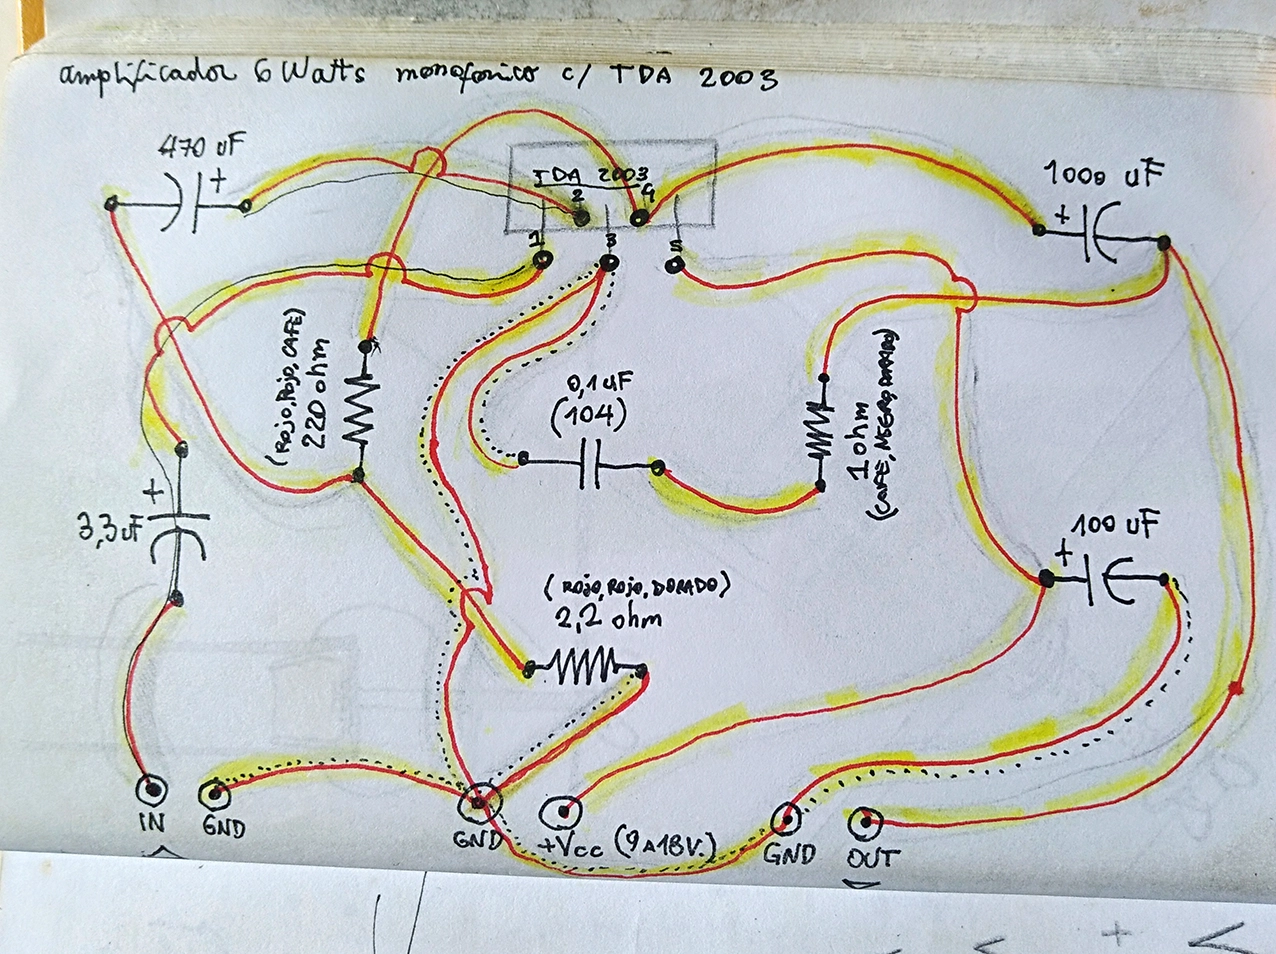 amplificador 6 Watts monofonico c/ TDA 2003
470 uF
+
TDA 2003
2
4
1
3
5
1000 uF
+
(ROJO, ROJO, CAFE)
220 ohm
0,1 uF
(104)
1 ohm
(CAFE, NEGRO, DORADO)
+
3,3uF
100 uF
+
(ROJO, ROJO, DORADO)
2,2 ohm
IN
GND
GND
+Vcc (9 A 18V.)
GND
OUT
+